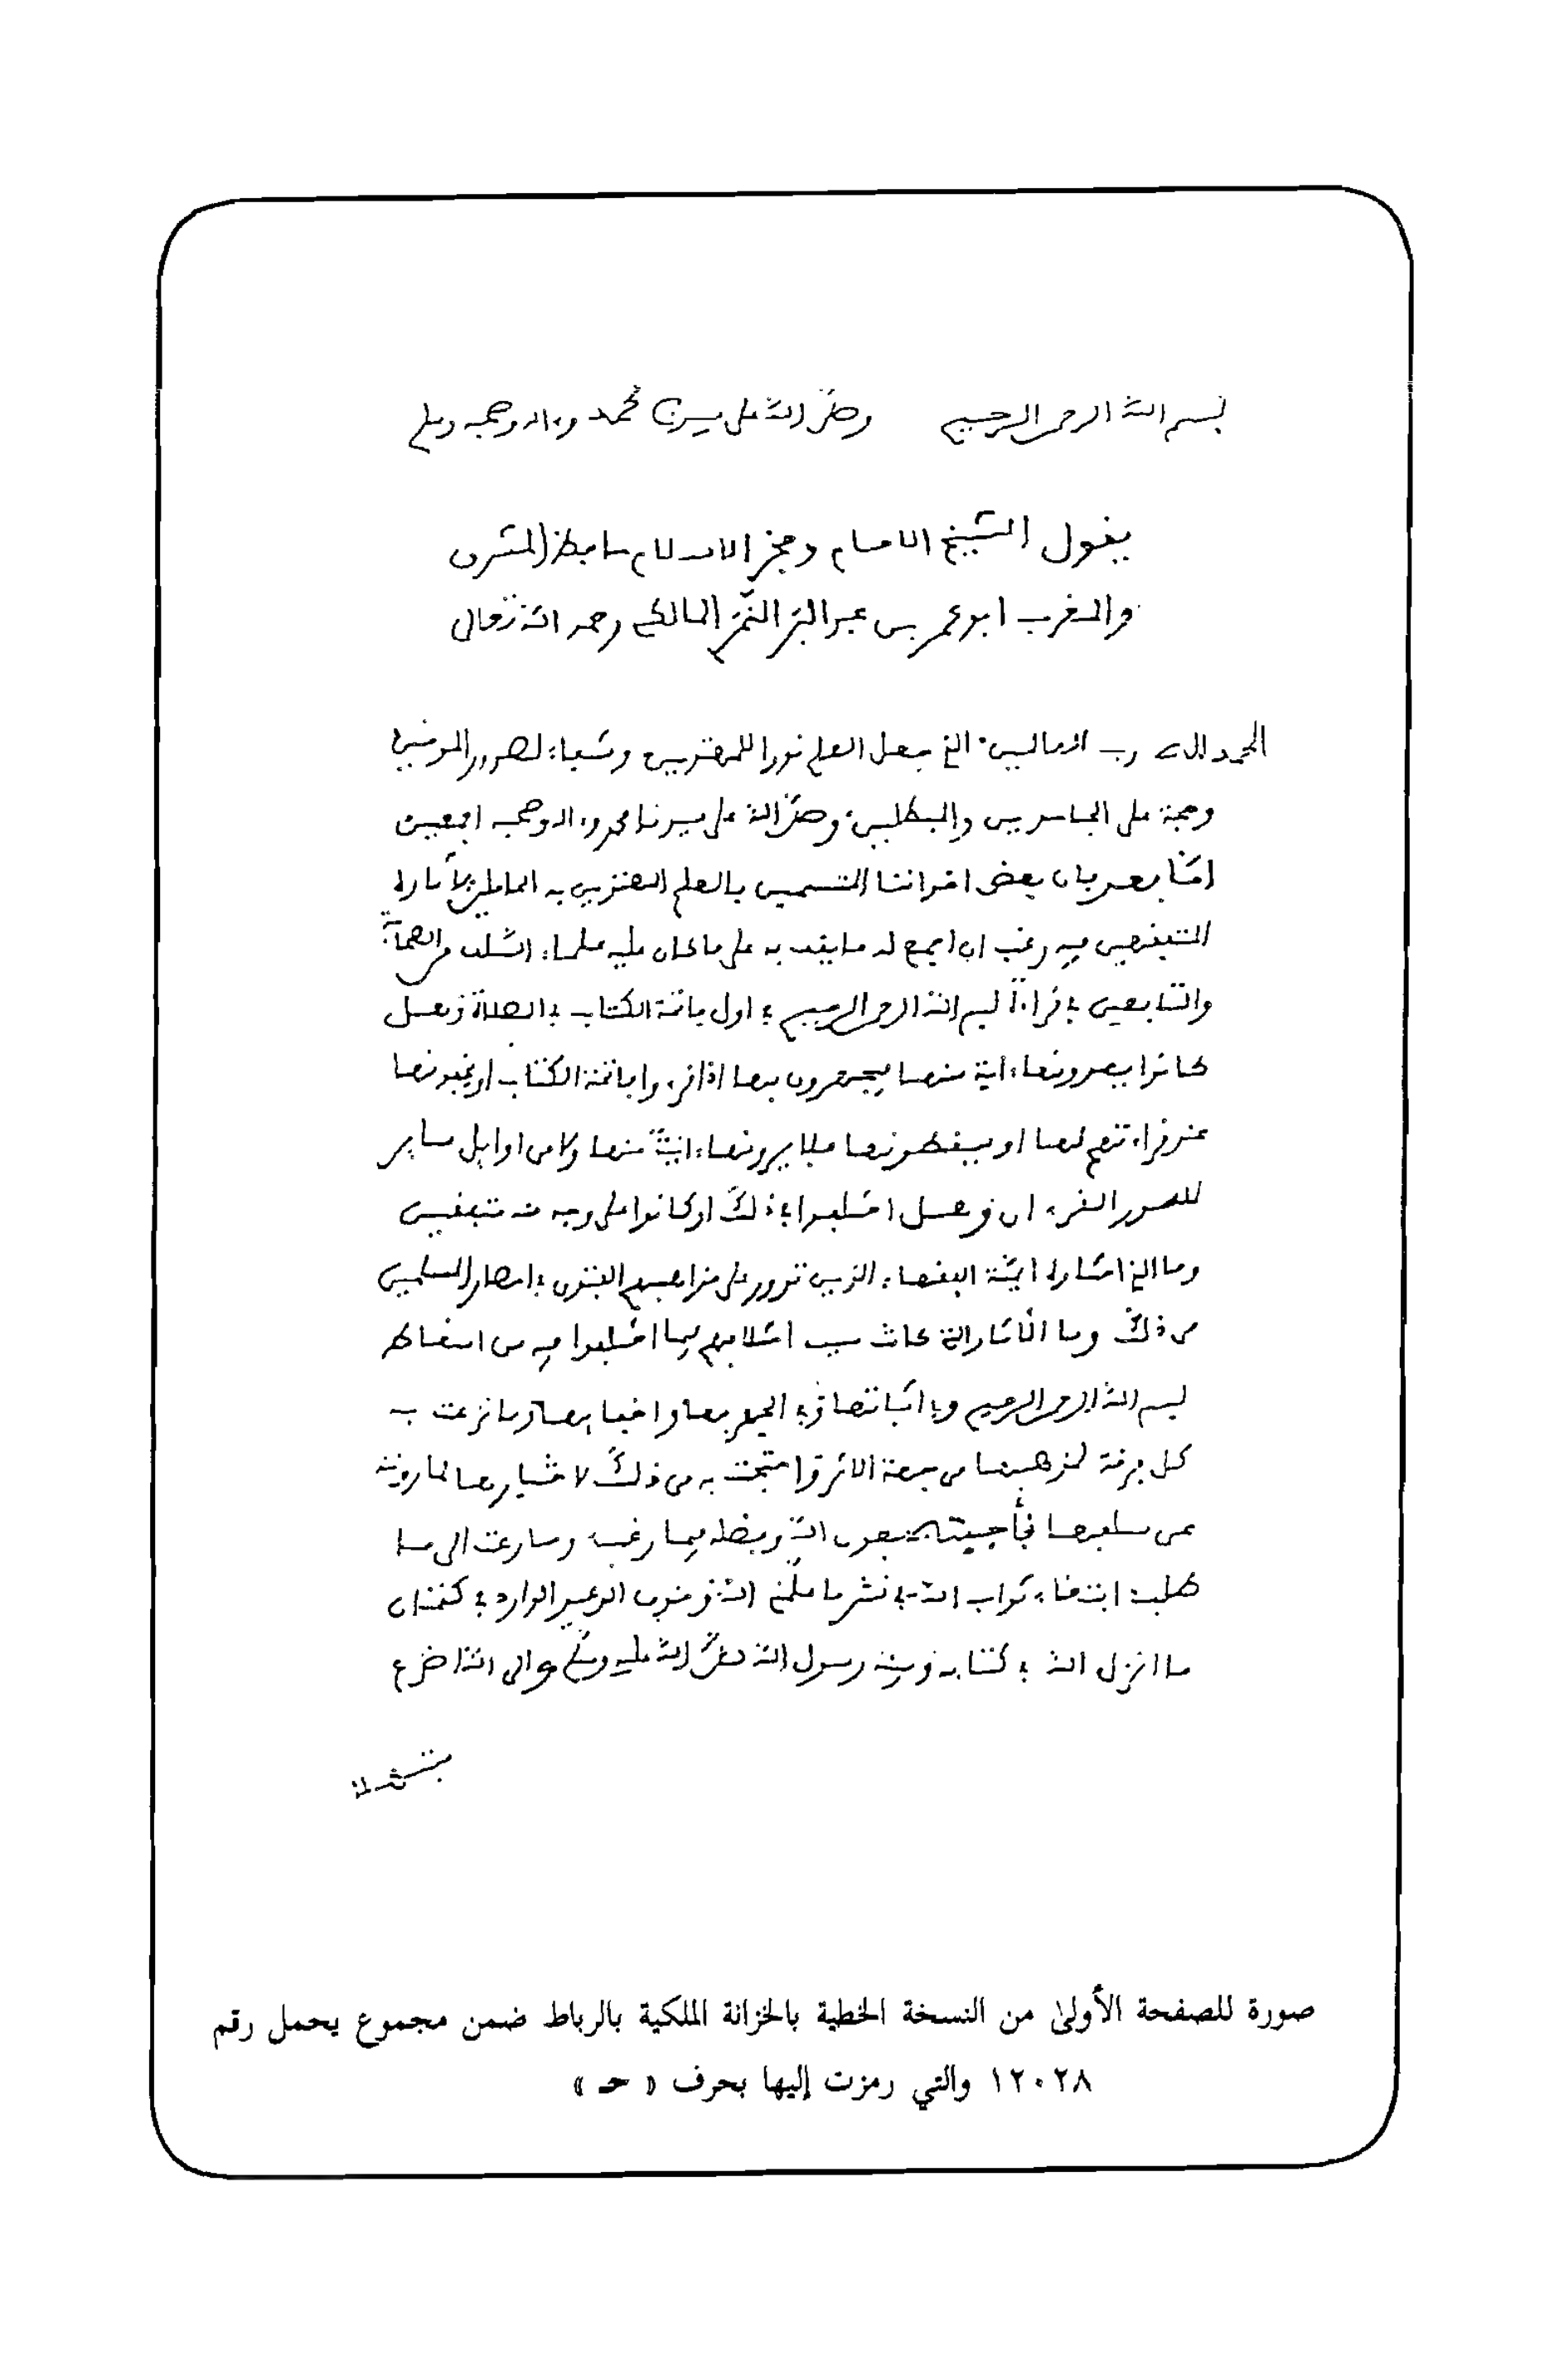 بسم الله الرحمن الرحيم وصلى الله على سيدنا محمد وءاله وصحبه وسلم
يقول الشيخ الامام وفخر الاسلام حافظ المشرق
والمغرب ابو عمر بن عبد البر النمري المالكي رحمه الله تعالى
الحمد لله رب العالمين الذي جعل العلم نورا للمهتدين وشفاء لصدور المومنين
وحجة على الجاحدين والمبطلين وصلى الله على سيدنا محمد وءاله وصحبه اجمعين
اما بعد فان بعض اخواننا بالعلم به
المتفقهين فيه رغب ان اجمع له ما يقف به على ما كان عليه علماء السلف من الصحابة
والتابعين في قراءة بسم الله الرحمن الرحيم في اول فاتحة الكتاب في الصلاة وهل
كانوا يعدونها ءاية منها يجهرون بها اذا قرءوا فاتحة الكتاب او يخفونها
عند قراءتهم لها او يسقطونها فلا يرونها ءاية منها ولا من اوايل ساير
السور القرءان وهل اختلفوا في ذلك او كانوا على وجه منه متفقين
وما الذي اختاره ايمة الفقهاء الذين تدور على مذاهبهم الفتوى في امصار المسلمين
من ذلك وما الاثار التي كانت سبب اختلافهم فيما اختلفوا فيه من اسقاط
بسم الله الرحمن الرحيم وفي اثباتها وفي الجهر بها واخفايها وما نزعت به
كل فرقة لمذهبها من جهة الاثر واحتجت به من ذلك لاختيارها لما روته
عن سلفها فأجبته بعون الله وفضله فيما رغب وسارعت الى ما
طلب ابتغاء ثواب الله في نشر ما علمني الله وخوف الوعيد الوارد في كتمان
ما انزل الله في كتابه وسنة رسول الله صلى الله عليه وسلم والى الله اضرع
صورة للصفحة الأولى من النسخة الخطية بالخزانة الملكية بالرباط ضمن مجموع يحمل رقم
١٢٠٢٨ والتي رمزت إليها بحرف « حـ »